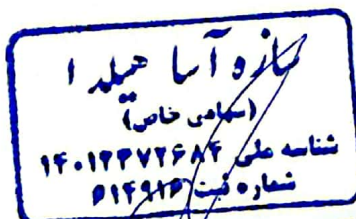 سازه آسا هیلدا
(سهامی خاص)
شناسه ملی ۱۴۰۱۲۳۷۲۶۸۴
شماره ثبت ۶۱۴۹۱۶